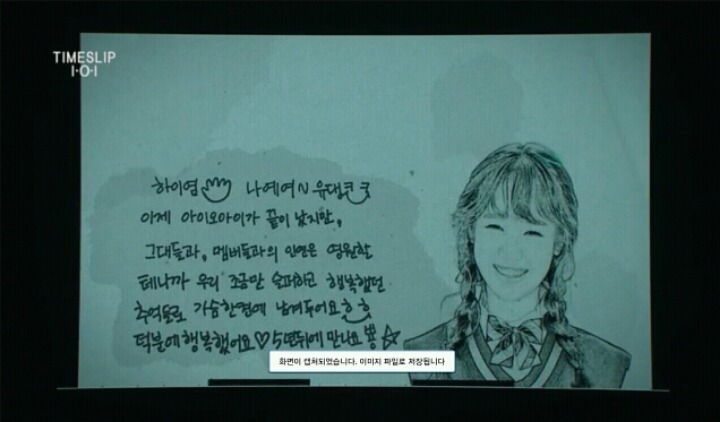 TIMESLIP
I·O·I
하이염 나예여~ 유댕ㅋㅋ
이제 아이오아이가 끝이 났지만,
그대들과, 멤버들과의 인연은 영원할
테니까 우리 조금만 슬퍼하고 행복했던
추억들로 가슴한켠에 남겨두어요ㅎㅎ
덕분에 행복했어요♡ 5년뒤에 만나요 뿅☆
화면이 캡처되었습니다. 이미지 파일로 저장됩니다